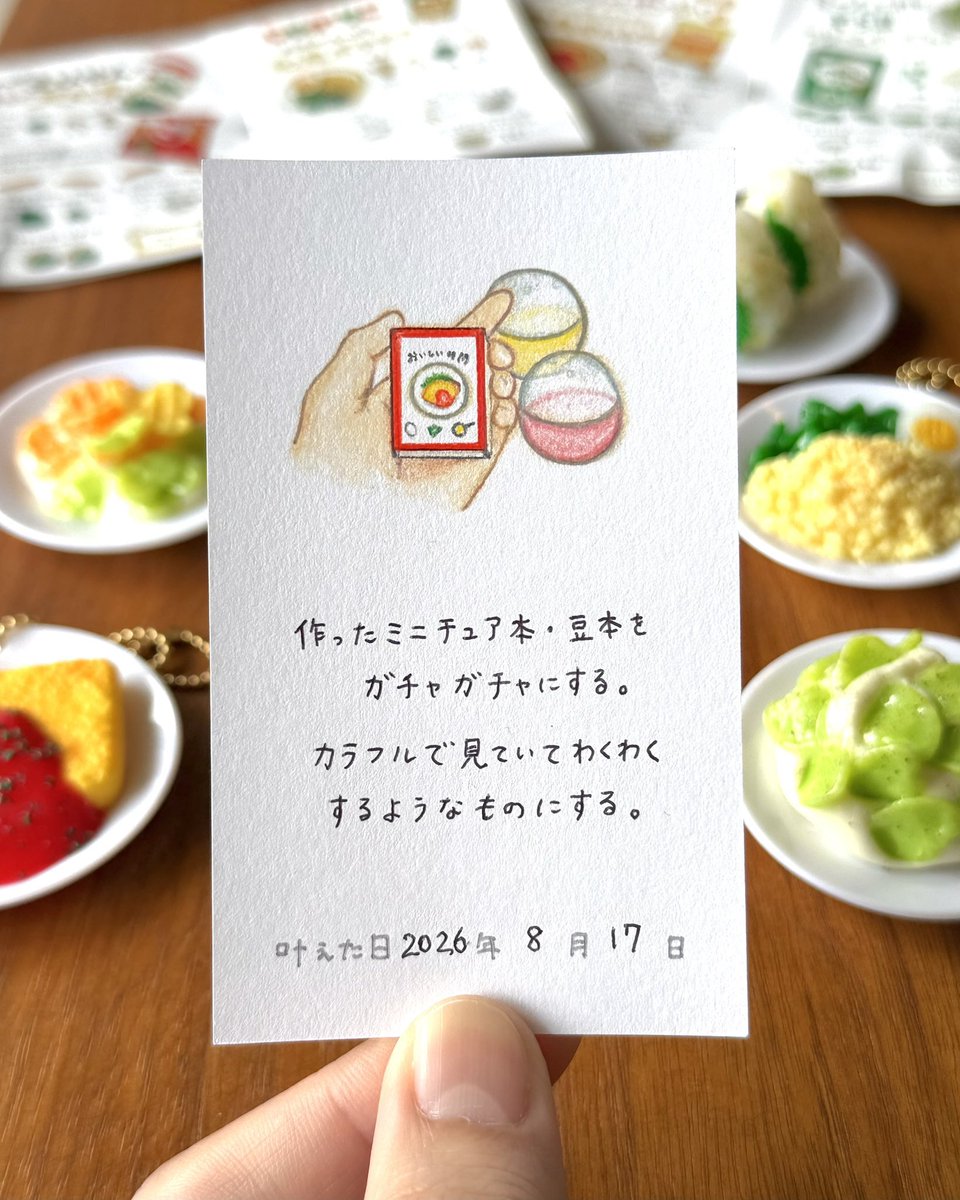 おいしい時間
作ったミニチュア本・豆本を
ガチャガチャにする。
カラフルで見ていてわくわく
するようなものにする。
叶えた日 2026年 8月 17日